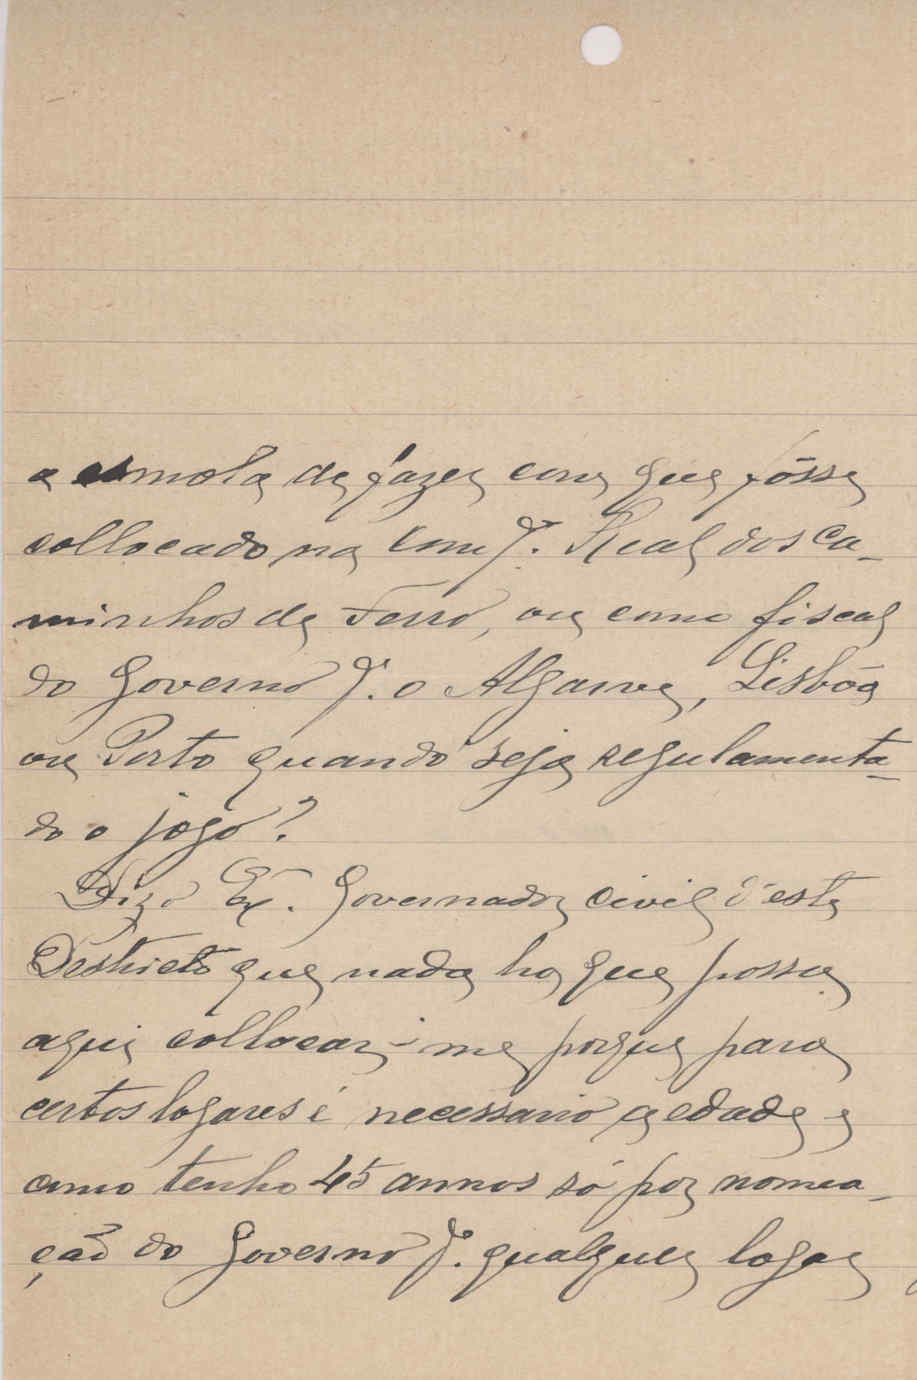 a esmola de fazer com que fôsse
collocado na Comp.ª Real dos Ca-
minhos de Ferro, ou como fiscal
do Governo p.ª o Algarve, Lisbôa
ou Porto quando seja regulamenta-
do o jogo?
Diz o Ex. Governador civil d'este
Destricto que nada ha que possa
aqui collocar-me porque para
certos logares é necessario a edade e
como tenho 45 annos só por nomea-
ção do Governo p.ª qualquer logar